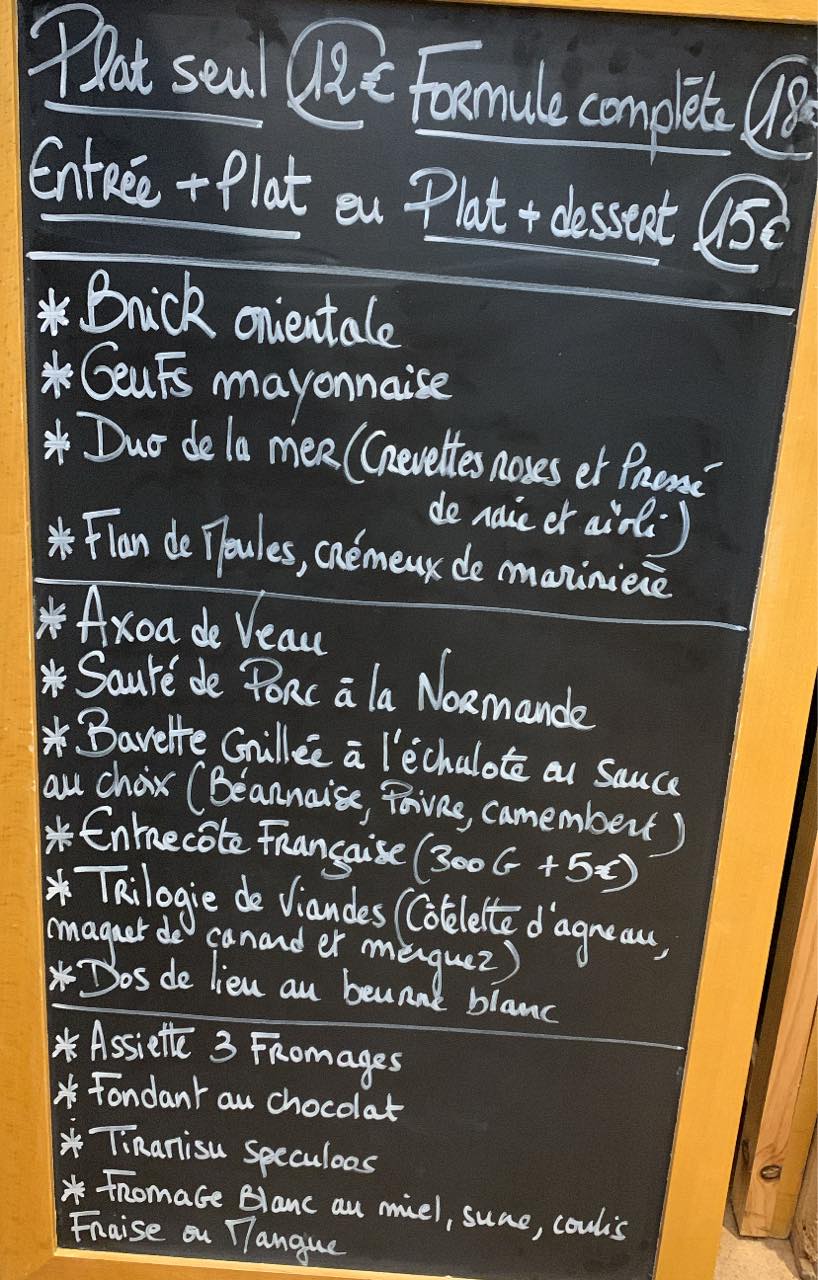 Plat seul 12€ Formule complète 18€
Entrée + Plat ou Plat + dessert 15€
* Brick orientale
* Oeufs mayonnaise
* Duo de la mer (Crevettes roses et Pressé
de raie et aïoli)
* Flan de Moules, crémeux de marinière
* Axoa de Veau
* Sauté de Porc à la Normande
* Bavette Grillée à l'échalote ou Sauce
au choix (Béarnaise, Poivre, camembert)
* Entrecôte Française (300 G + 5€)
* Trilogie de Viandes (Côtelette d'agneau,
magret de canard et merguez)
* Dos de lieu au beurre blanc
* Assiette 3 Fromages
* Fondant au chocolat
* Tiramisu speculoos
* Fromage Blanc au miel, sucre, coulis
Fraise ou Mangue